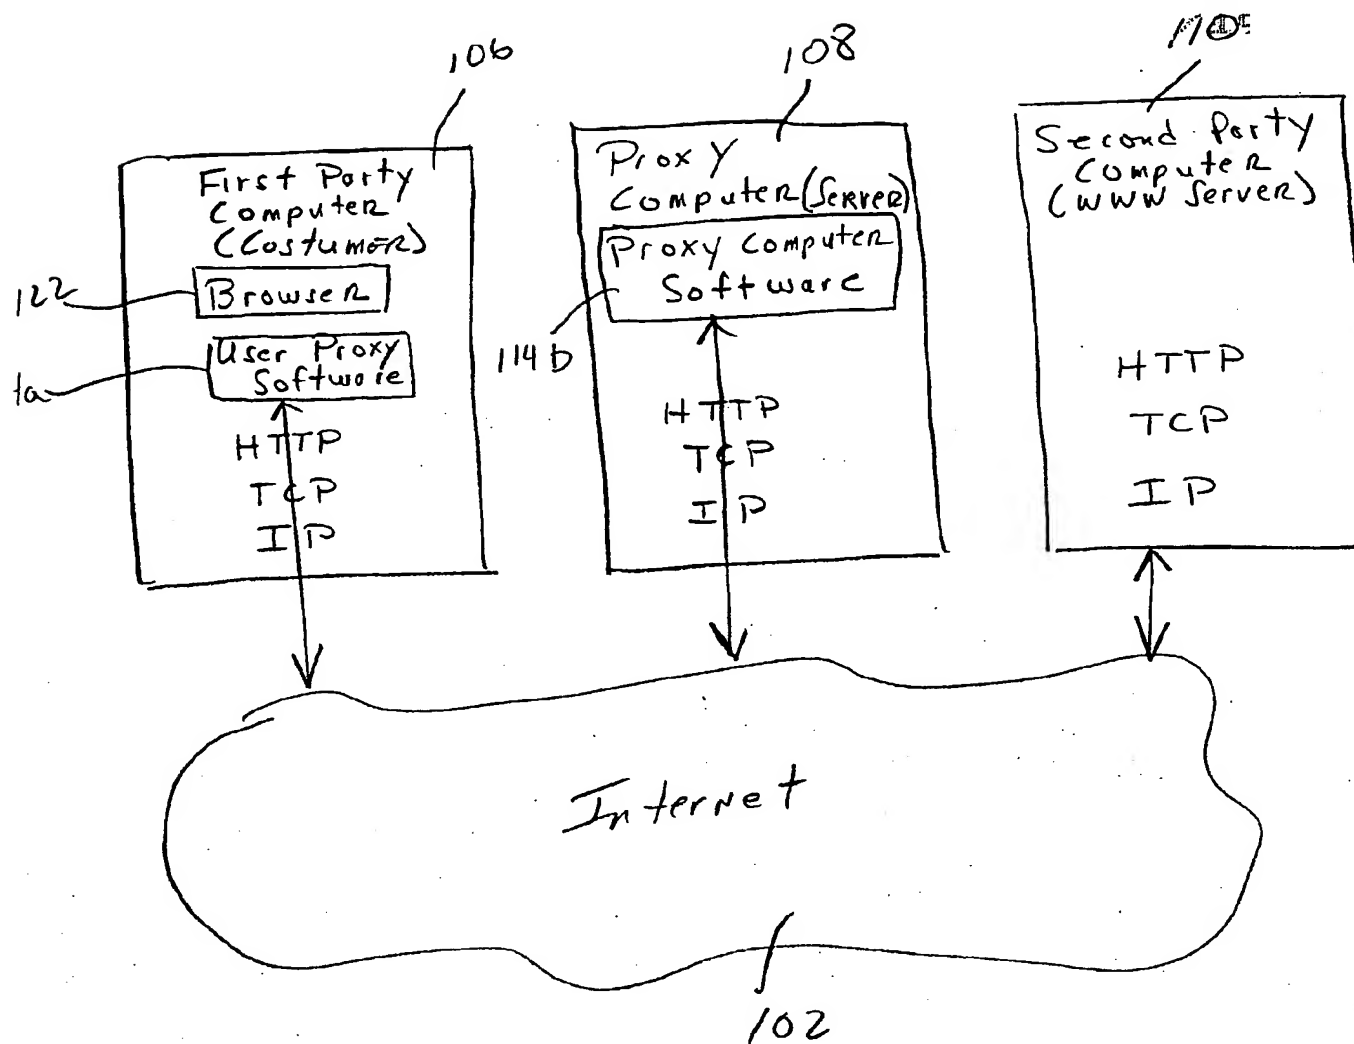 106
First Party
Computer
(Costumer)
122
Browser
User Proxy
Software
1a
HTTP
TCP
IP
108
Proxy
Computer (Server)
Proxy Computer
Software
114b
HTTP
TCP
IP
Second Party
Computer
(WWW Server)
HTTP
TCP
IP
Internet
102